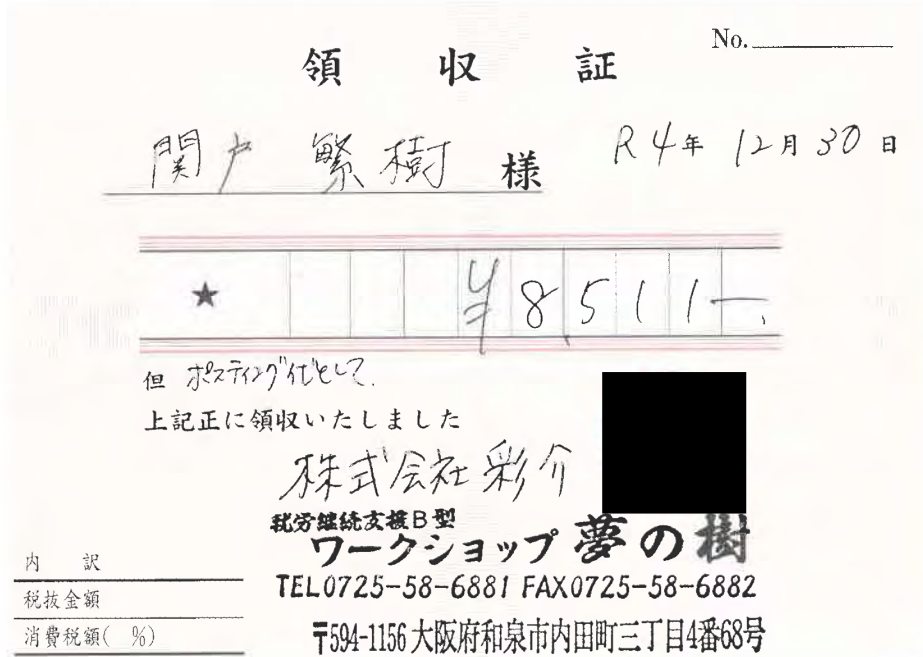 No.
領収証
関戸 繁樹 様
R4年 12月 30日
★ ¥8,511-.
但 ポスティング代として.
上記正に領収いたしました
株式会社 彩介
就労継続支援B型
ワークショップ 夢の樹
TEL0725-58-6881 FAX0725-58-6882
〒594-1156 大阪府和泉市内田町三丁目4番68号
内 訳
税抜金額
消費税額( %)